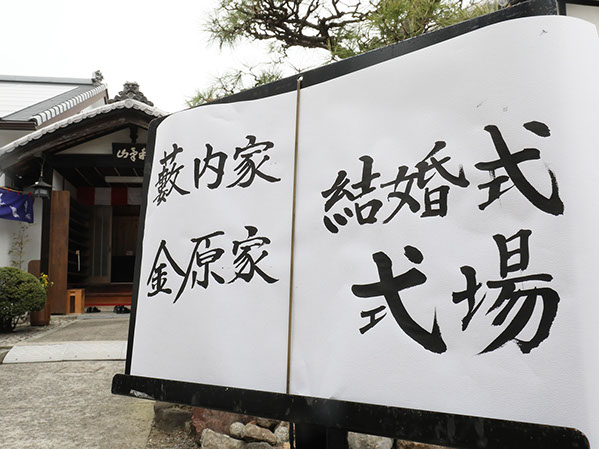 藪内家
金原家
結婚式
式場